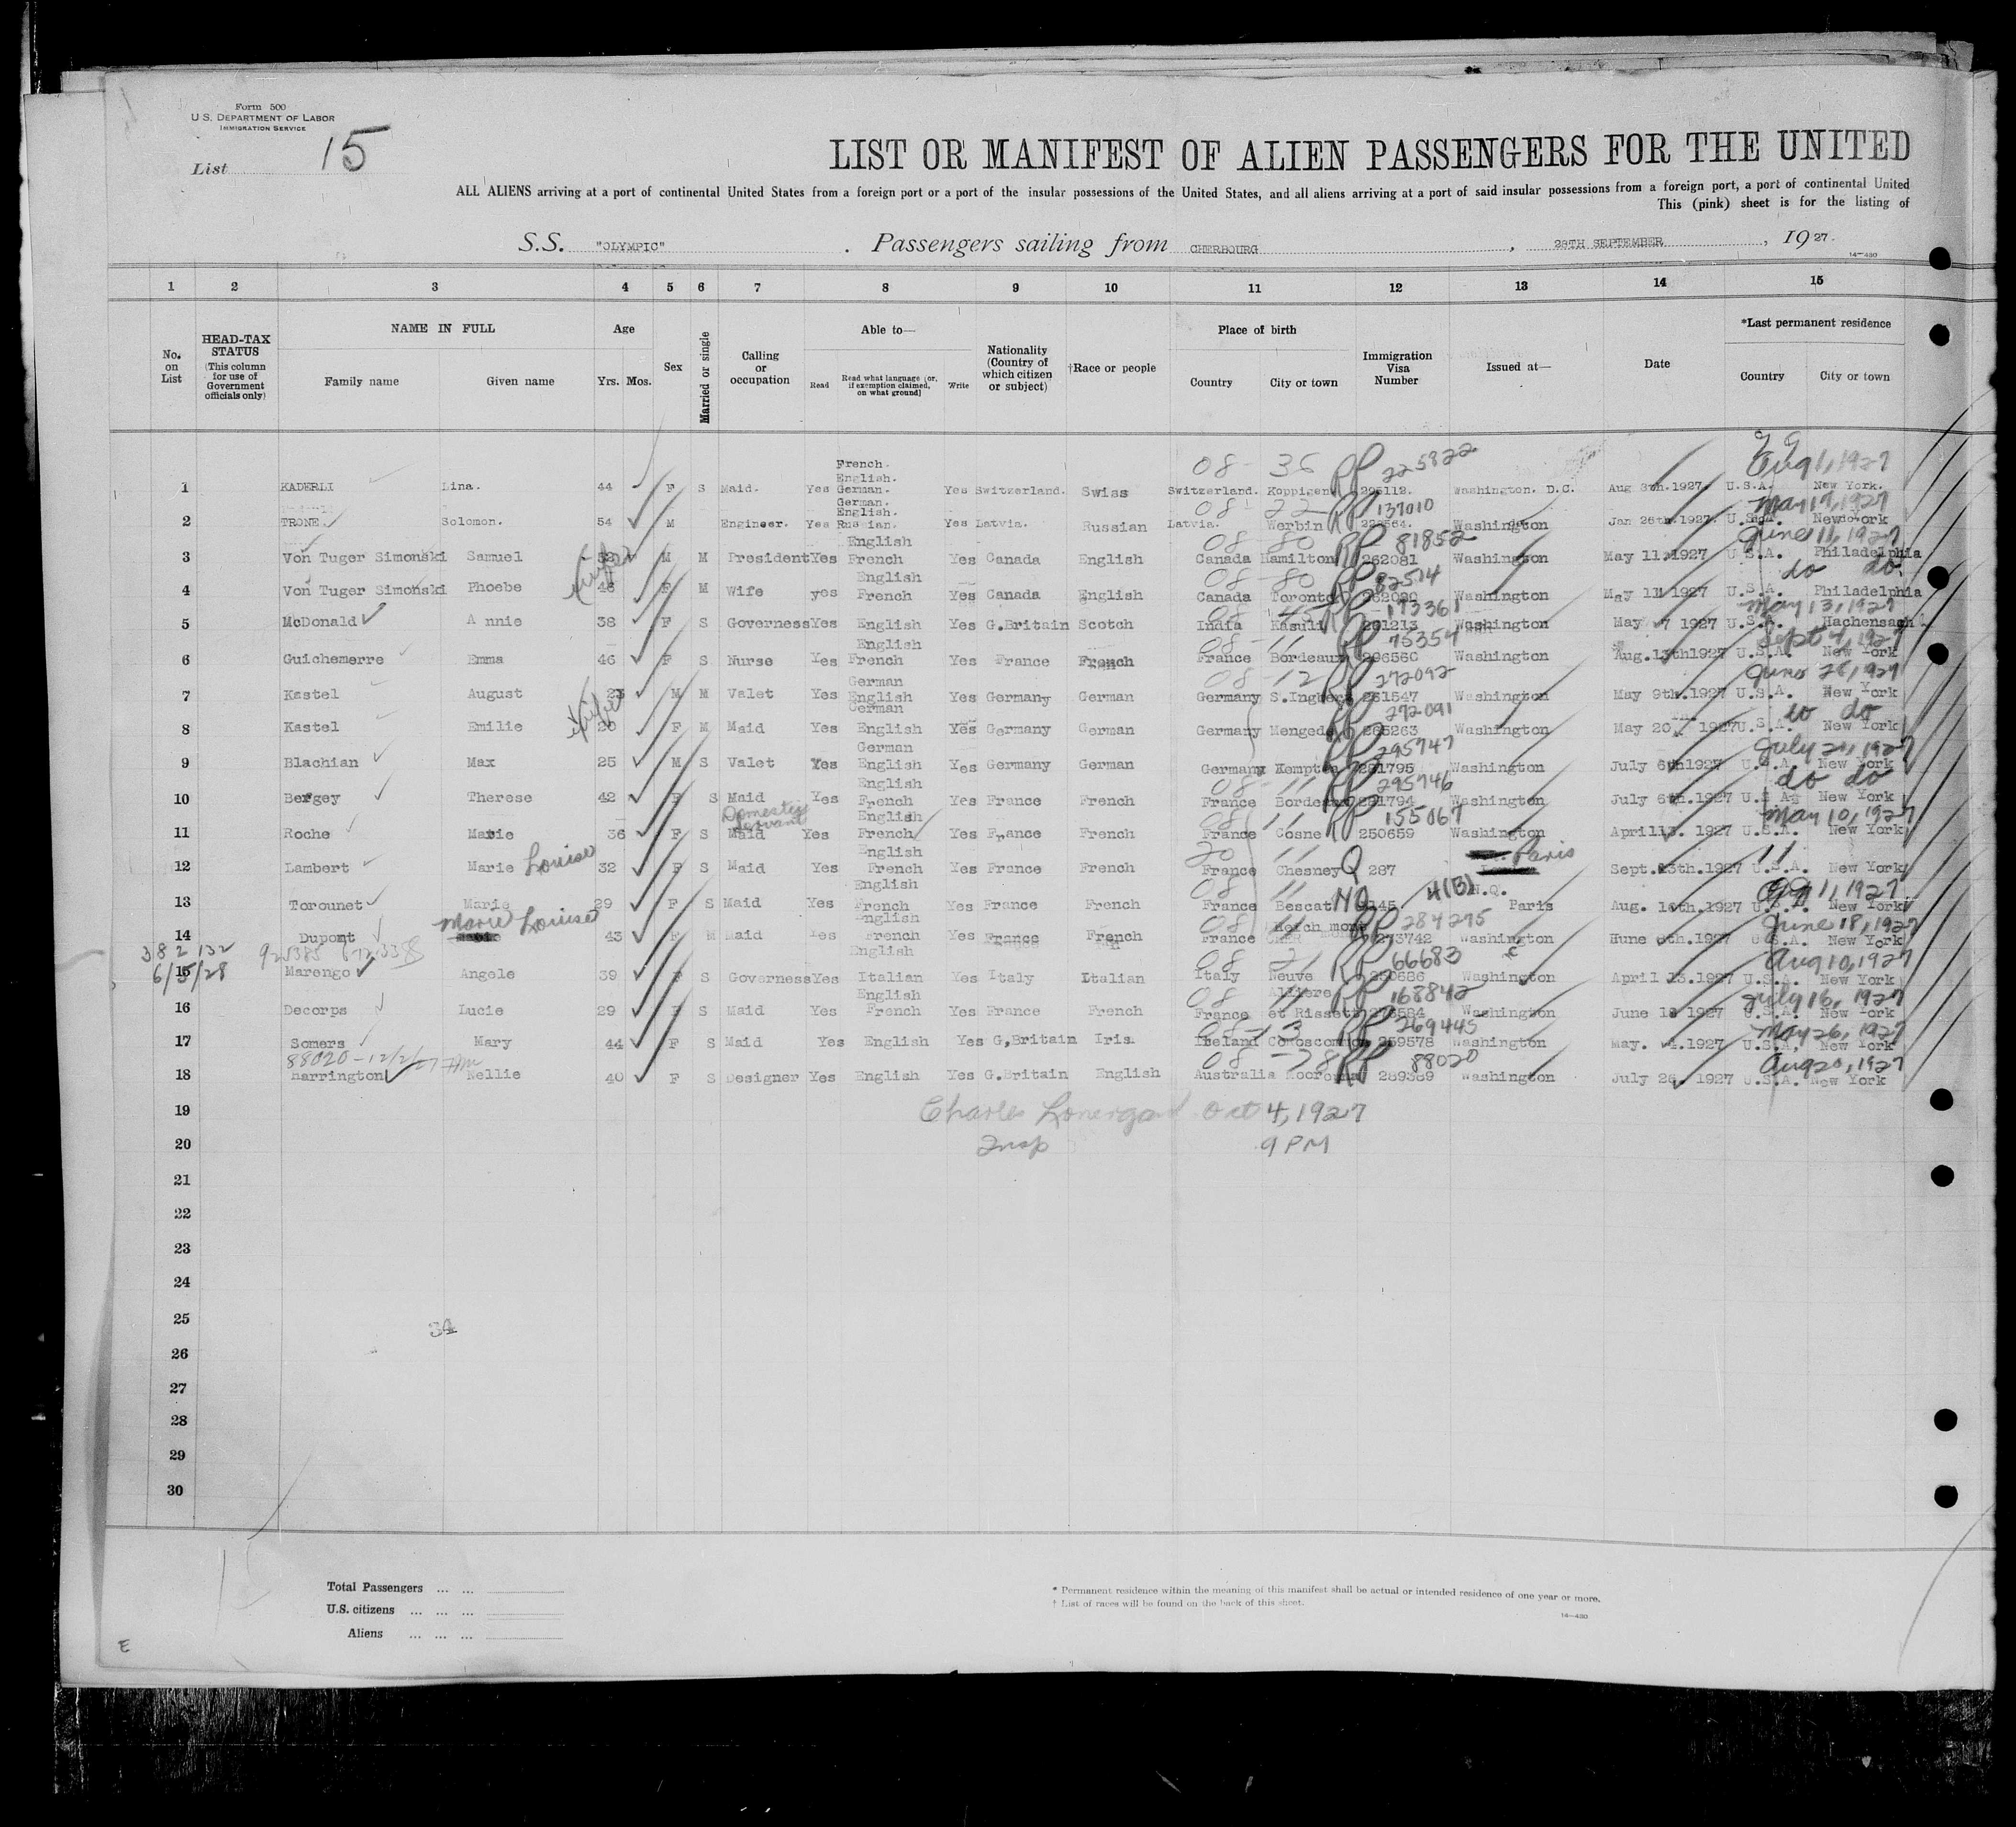 Form 500
U.S. DEPARTMENT OF LABOR
IMMIGRATION SERVICE
List 15
LIST OR MANIFEST OF ALIEN PASSENGERS FOR THE UNITED
ALL ALIENS arriving at a port of continental United States from a foreign port or a port of the insular possessions of the United States, and all aliens arriving at a port of said insular possessions from a foreign port, a port of continental United
This (pink) sheet is for the listing of
S.S. "OLYMPIC" . Passengers sailing from CHERBOURG , 28TH SEPTEMBER , 19 27.
14-430
1 2 3 4 5 6 7 8 9 10 11 12 13 14 15
No. on List
HEAD-TAX STATUS (This column for use of Government officials only)
NAME IN FULL Family name Given name
Age Yrs. Mos.
Sex
Married or single
Calling or occupation
Able to— Read Read what language (or, if exemption claimed, on what ground) Write
Nationality (Country of which citizen or subject)
†Race or people
Place of birth Country City or town
Immigration Visa Number
Issued at—
Date
*Last permanent residence Country City or town
French. English. 08 - 36 RP 225822 Aug 1, 1927
1 KADERLI Lina. 44 F S Maid. Yes German. Yes Switzerland. Swiss Switzerland. Koppigen Washington. D.C. Aug 8th.1927. U.S.A. New York.
German. English. 08 22 RP 137010 May 17, 1927
2 TRONE. Solomon. 54 M Engineer. Yes Russian. Yes Latvia. Russian Latvia. Werbin Washington Jan 26th.1927. New York
English 08 80 RP 81852 June 11, 1927
3 Von Tuger Simonski Samuel 52 M M President Yes French Yes Canada English Canada Hamilton 262081 Washington May 11.1927 U.S.A. Philadelphia
English 08 - 80 RP 82514 do do
4 Von Tuger Simonski Phoebe 46 F M Wife yes French Yes Canada English Canada Toronto Washington May 11 1927 U.S.A. Philadelphia
08 RP 173361 May 13, 1927
5 McDonald Annie 38 F S Governess Yes English Yes G.Britain Scotch India Washington May 7 1927 U.S.A.
English 08 - 11 RP 75354 Sept 4, 1927
6 Guichemerre Emma 46 F S Nurse Yes French Yes France French France Bordeaux 296560 Washington Aug.13th1927 U.S.A. New York
German 08 - 12 RP 272092 June 26, 1927
7 Kastel August M M Valet Yes English Yes Germany German Germany S.Ingbert 261547 Washington May 9th.1927 U.S.A. New York
German RP 272091 do do
8 Kastel Emilie 26 F M Maid Yes English Yes Germany German Germany Mengede 265263 Washington May 20 1927 U.S.A. New York
German RP 295747 July 21, 1927
9 Blachian Max 25 M S Valet Yes English Yes Germany German Germany Kempten 281795 Washington July 6th1927 U.S.A. New York
English 08 - 11 RP 295746 do do
10 Bergey Therese 42 F S Maid Yes French Yes France French France Bordeaux 281794 Washington July 6th.1927 U.S.A. New York
Domestic Servant English 08 11 RP 155067 May 10, 1927
11 Roche Marie 36 F S Maid Yes French Yes France French France Cosne 250659 Washington April 1927 U.S.A. New York
English 20 11 Paris 11
12 Lambert Marie Louise 32 F S Maid Yes French Yes France French France Chesney Q 287 Sept.23th.1927 U.S.A. New York
English 08 11 4(B) N.Q. 1, 1927
13 Torounet Marie 29 F S Maid Yes French Yes France French France Bescat NQ Paris Aug. 16th.1927 U.S.A. New York
Marie Louise English 08 11 RP 284295 June 18, 1927
14 Dupont 43 F M Maid Yes French Yes France French France 273742 Washington Hune 8th.1927 U.S.A. New York
382 132 English 08 21 RP 66683 Aug 10, 1927
6/5/28
15 Marengo Angele 39 F S Governess Yes Italian Yes Italy Italian Italy Neuve 250686 Washington April 13.1927 U.S.A. New York
English 08 11 RP 168842 July 16, 1927
16 Decorps Lucie 29 F S Maid Yes French Yes France French France Washington June 1927 U.S.A. New York
08 - 13 RP 269445 May 26, 1927
17 Somers Mary 44 F S Maid Yes English Yes G,Britain Iris. Ireland 259578 Washington May. 4.1927 U.S.A. New York
88020 - 12/2/27 08 - 78 RP 88020 Aug 20, 1927
18 Harrington Nellie 40 F S Designer Yes English Yes G.Britain English Australia 289389 Washington July 26. 1927 U.S.A. New York
19 Charles Lonergan Oct 4, 1927
20 Insp 9 PM
21
22
23
24
25
34
26
27
28
29
30
Total Passengers ... ...
U.S. citizens ... ... ...
Aliens ... ... ...
* Permanent residence within the meaning of this manifest shall be actual or intended residence of one year or more.
† List of races will be found on the back of this sheet.
14-430
E